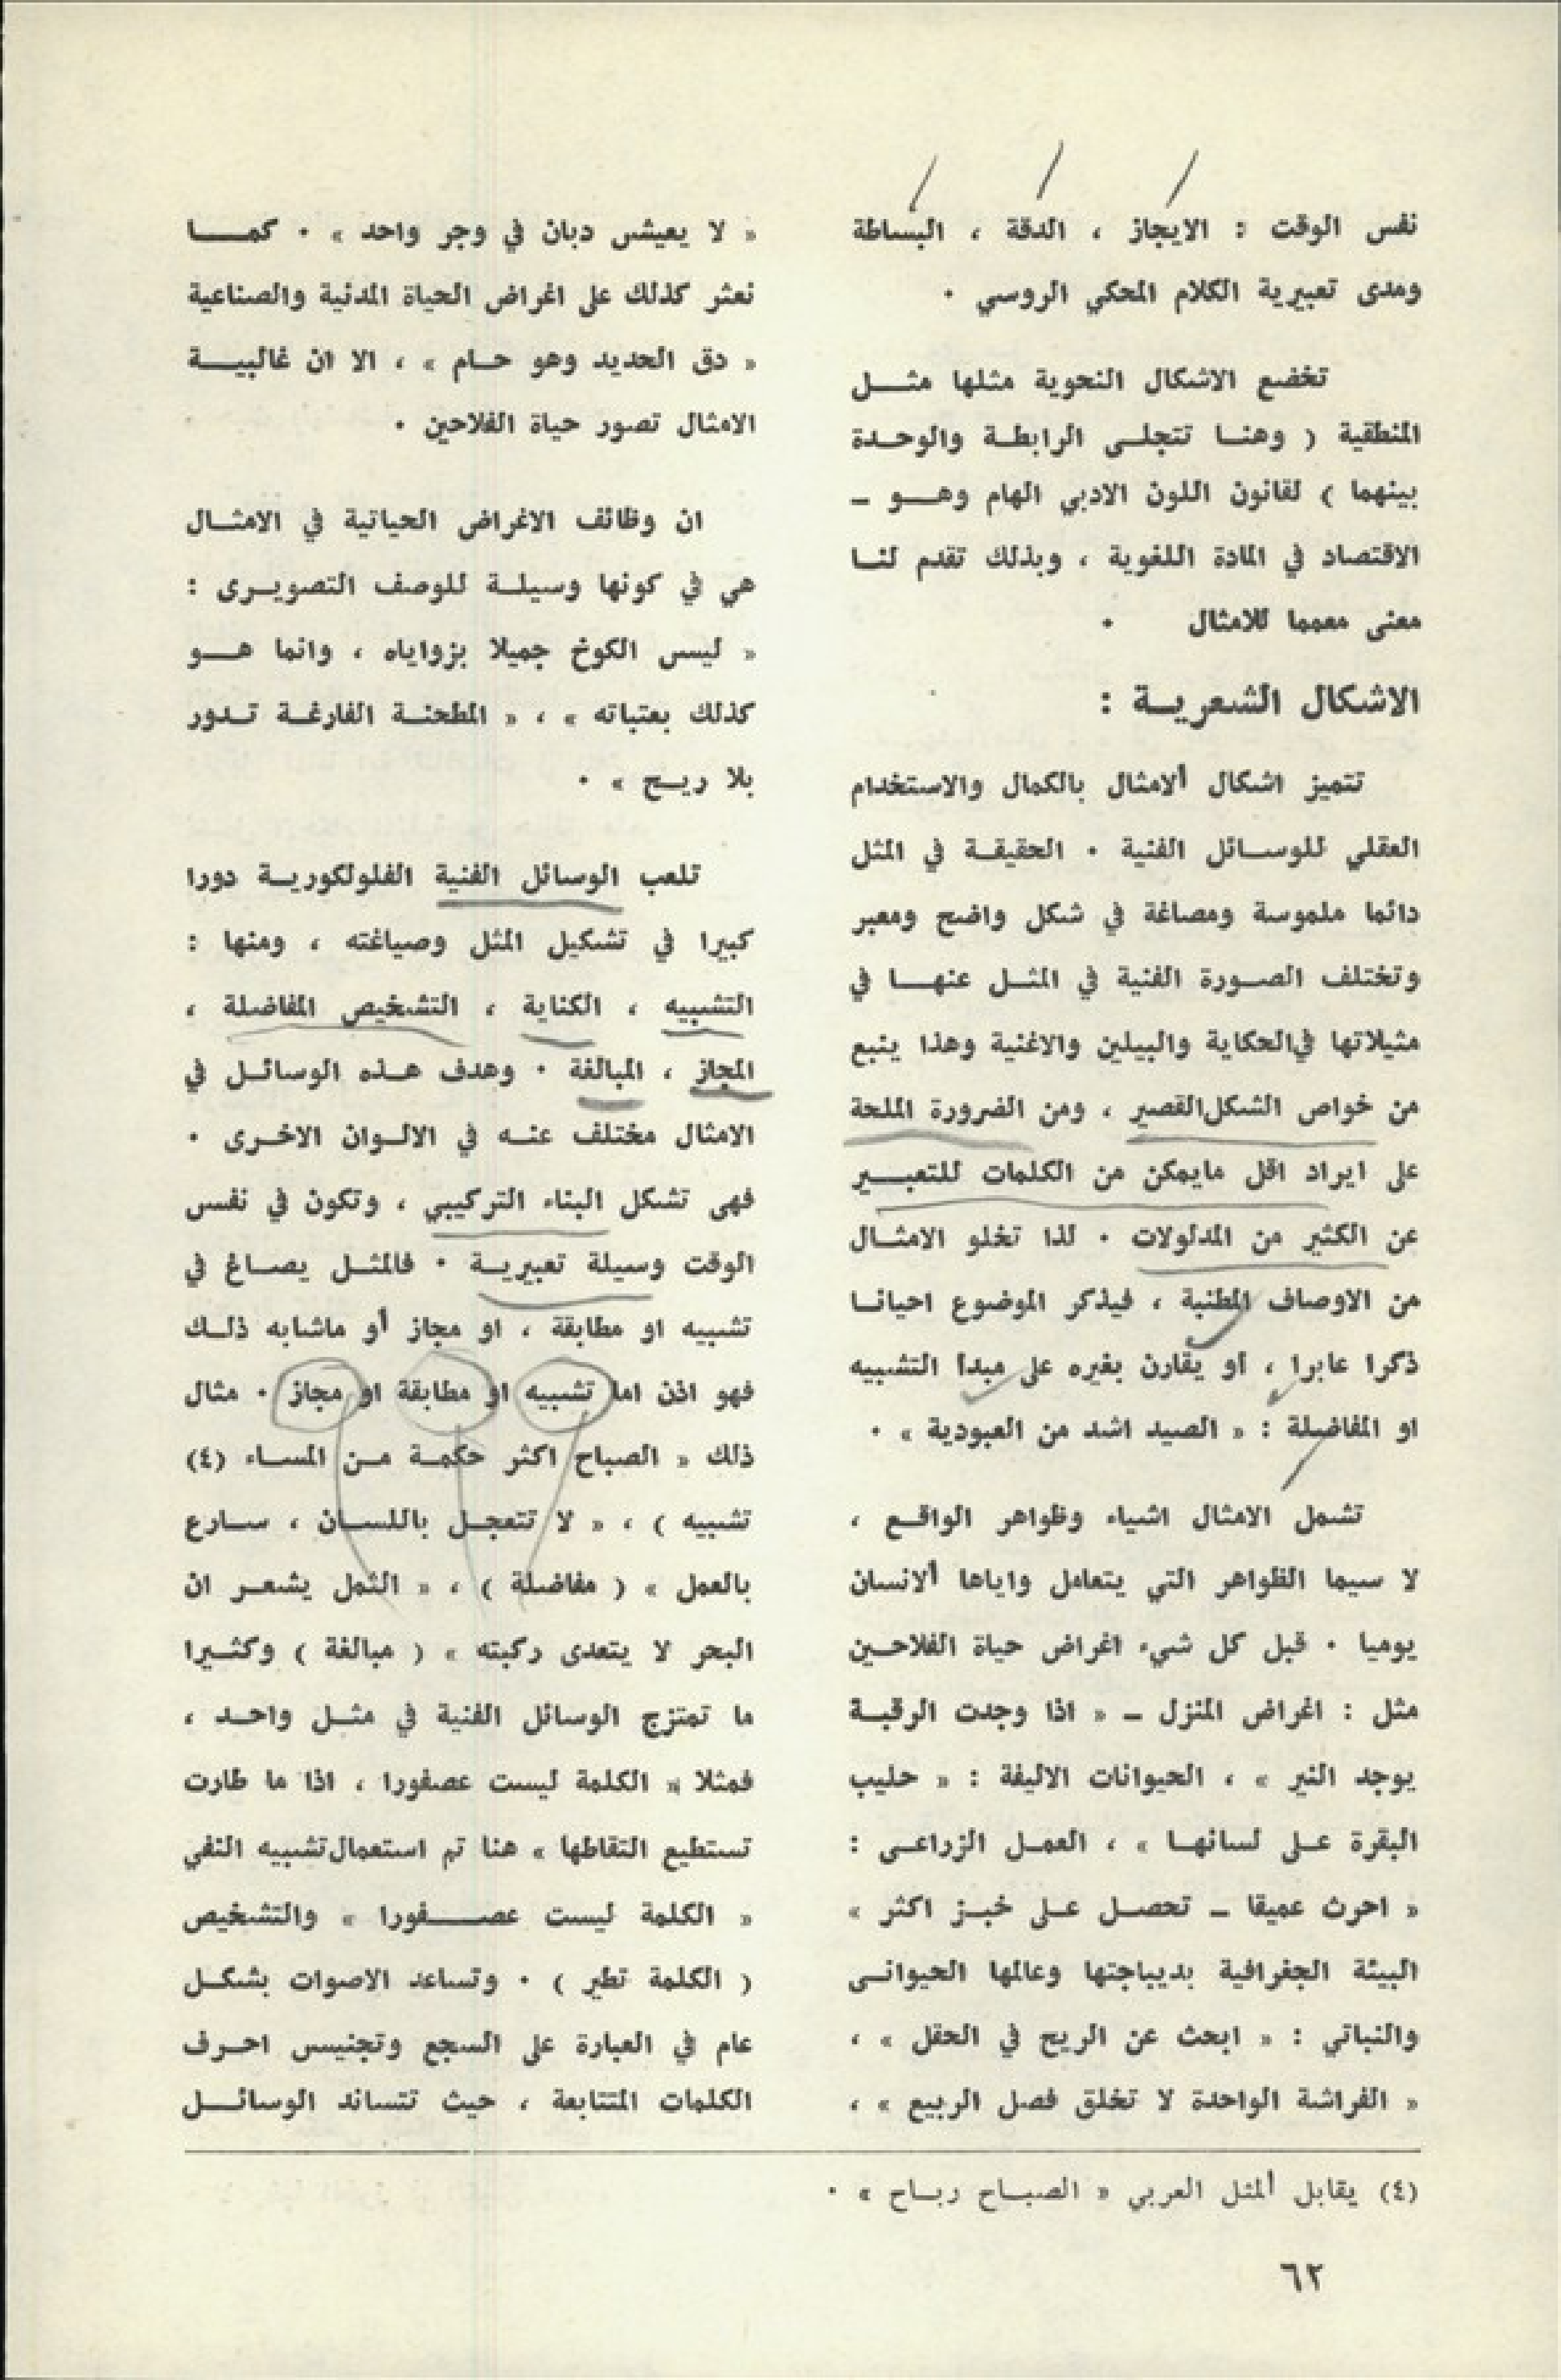 نفس الوقت : الايجاز ، الدقة ، البساطة
ومدى تعبيرية الكلام المحكي الروسي ·
تخضع الاشكال النحوية مثلها مثل
المنطقية ( وهنا تتجلى الرابطة والوحدة
بينهما ) لقانون اللون الادبي الهام وهو –
الاقتصاد في المادة اللغوية ، وبذلك تقدم لنا
معنى معمما للامثال ·
الاشكال الشعرية :
تتميز اشكال ألامثال بالكمال والاستخدام
العقلي للوسائل الفنية · الحقيقة في المثل
دائما ملموسة ومصاغة في شكل واضح ومعبر
وتختلف الصورة الفنية في المثل عنها في
مثيلاتها في الحكاية والبيلين والاغنية وهذا ينبع
من خواص الشكل القصير ، ومن الضرورة الملحة
على ايراد اقل مايمكن من الكلمات للتعبير
عن الكثير من المدلولات · لذا تخلو الامثال
من الاوصاف المطنبة ، فيذكر الموضوع احيانا
ذكرا عابرا ، أو يقارن بغيره على مبدأ التشبيه
او المفاضلة : « الصيد اشد من العبودية » ·
تشمل الامثال اشياء وظواهر الواقع ،
لا سيما الظواهر التي يتعامل واياها ألانسان
يوميا · قبل كل شيء اغراض حياة الفلاحين
مثل : اغراض المنزل – « اذا وجدت الرقبة
يوجد النير » ، الحيوانات الاليفة : « حليب
البقرة على لسانها » ، العمل الزراعى :
« احرث عميقا – تحصل على خبز اكثر »
البيئة الجغرافية بديباجتها وعالمها الحيوانى
والنباتي : « ابحث عن الريح في الحقل » ،
« الفراشة الواحدة لا تخلق فصل الربيع » ،
« لا يعيش دبان في وجر واحد » · كما
نعثر كذلك على اغراض الحياة المدنية والصناعية
« دق الحديد وهو حام » ، الا ان غالبية
الامثال تصور حياة الفلاحين ·
ان وظائف الاغراض الحياتية في الامثال
هي في كونها وسيلة للوصف التصويرى :
« ليس الكوخ جميلا بزواياه ، وانما هو
كذلك بعتباته » ، « المطحنة الفارغة تدور
بلا ريح » ·
تلعب الوسائل الفنية الفلولكورية دورا
كبيرا في تشكيل المثل وصياغته ، ومنها :
التشبيه ، الكناية ، التشخيص المفاضلة ،
المجاز ، المبالغة · وهدف هذه الوسائل في
الامثال مختلف عنه في الالوان الاخرى ·
فهى تشكل البناء التركيبي ، وتكون في نفس
الوقت وسيلة تعبيرية · فالمثل يصاغ في
تشبيه او مطابقة ، او مجاز أو ماشابه ذلك
فهو اذن اما تشبيه او مطابقة او مجاز · مثال
ذلك « الصباح اكثر حكمة من المساء (٤)
تشبيه ) ، « لا تتعجل باللسان ، سارع
بالعمل » ( مفاضلة ) ، « الثمل يشعر ان
البحر لا يتعدى ركبته » ( مبالغة ) وكثيرا
ما تمتزج الوسائل الفنية في مثل واحد ،
فمثلا « الكلمة ليست عصفورا ، اذا ما طارت
تستطيع التقاطها » هنا تم استعمال تشبيه النفي
« الكلمة ليست عصفورا » والتشخيص
( الكلمة تطير ) · وتساعد الاصوات بشكل
عام في العبارة على السجع وتجنيس احرف
الكلمات المتتابعة ، حيث تتساند الوسائل
(٤) يقابل ألمثل العربي « الصباح رباح » ·
٦٢